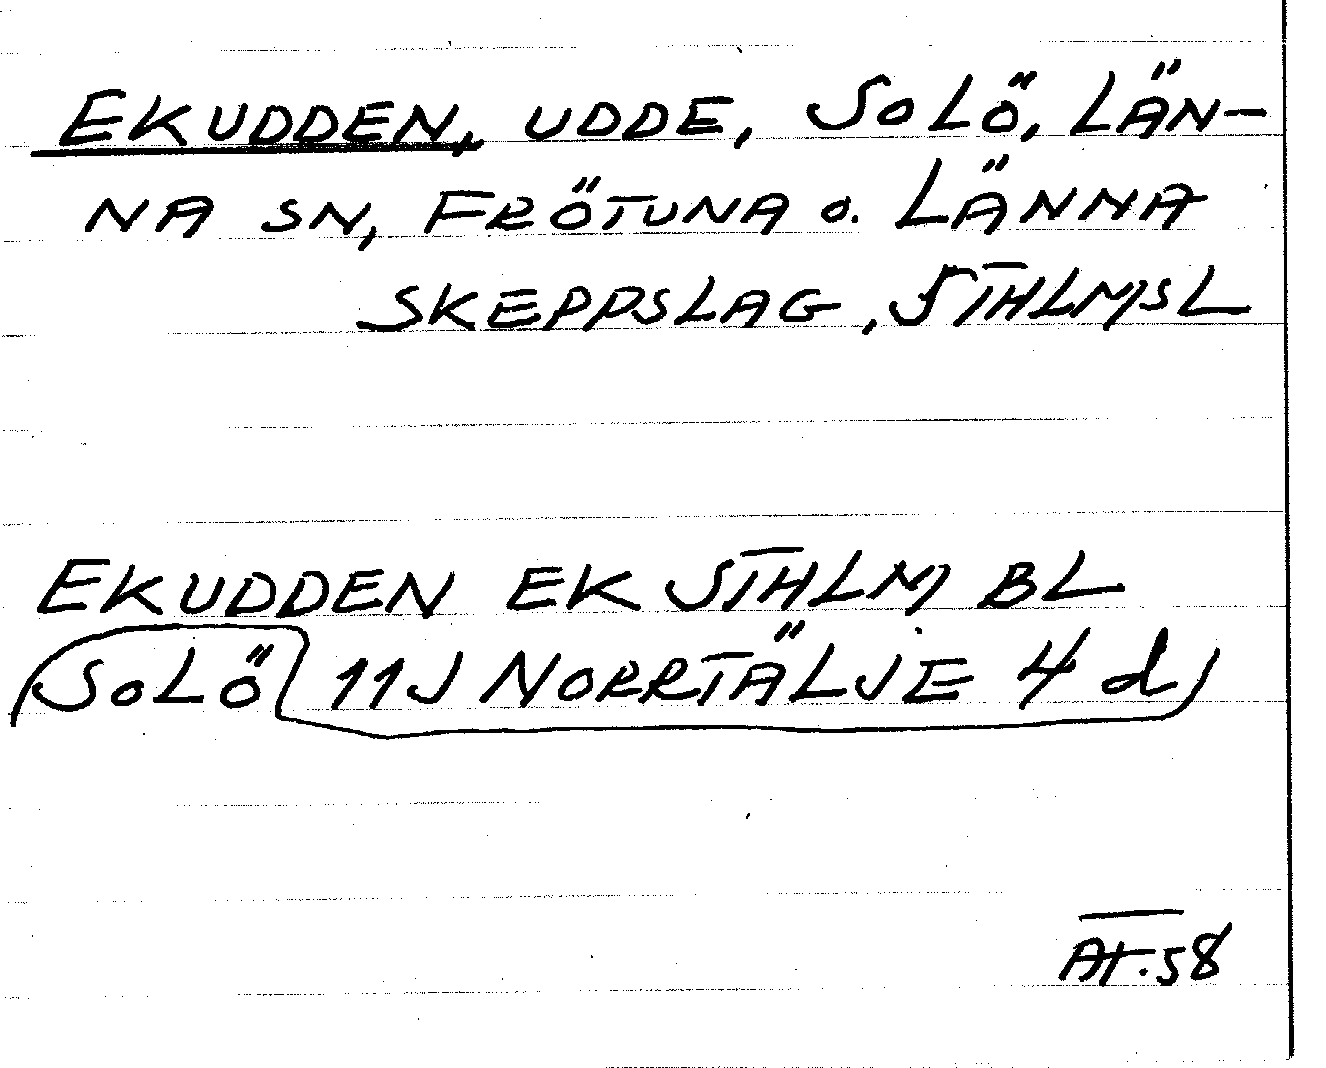 EKUDDEN, UDDE, SOLÖ, LÄN-
NA SN, FRÖTUNA o. LÄNNA
SKEPPSLAG, STHLMSL
EKUDDEN EK STHLM BL
SOLÖ 11J NORRTÄLJE 4 d
AT.58